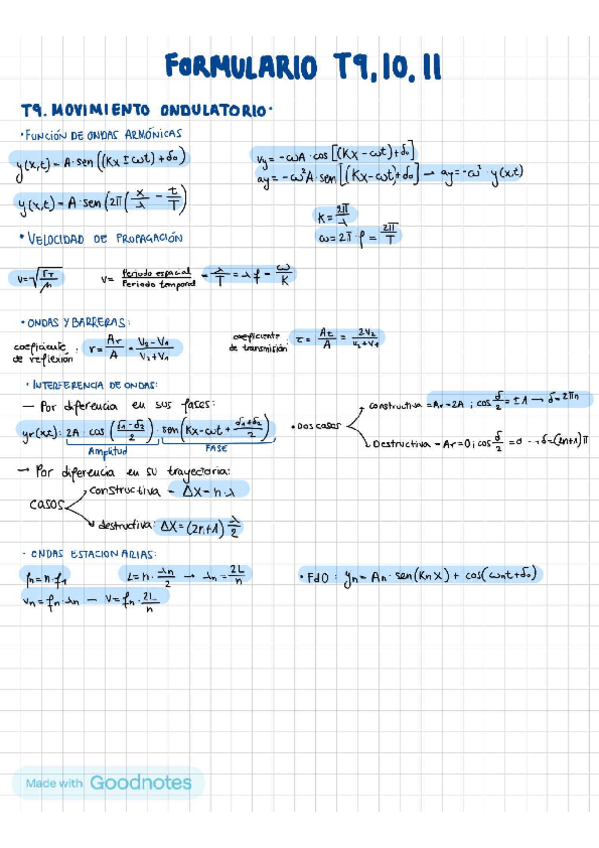 FORMULARIO T9, 10, 11
T9. MOVIMIENTO ONDULATORIO·
· FUNCIÓN DE ONDAS ARMÓNICAS
y(x,t) = A · sen((Kx ± ωt) + δ₀)
vy = -ωA · cos[(Kx - ωt) + δ₀]
ay = -ω² A · sen[(Kx - ωt) + δ₀] → ay = -ω² · y(x,t)
y(x,t) = A · sen(2π(x/λ - t/T))
K = 2π/λ
ω = 2π · f = 2π/T
• VELOCIDAD DE PROPAGACIÓN
v = √(FT/μ)
v = Periodo espacial / Periodo temporal = λ/T = λ · f = ω/K
· ONDAS Y BARRERAS:
coeficiente de reflexión: r = Ar/A = V₂-V₁/V₂+V₁
coeficiente de transmisión: τ = At/A = 2V₂/V₂+V₁
· INTERFERENCIA DE ONDAS:
— Por diferencia en sus fases:
yr(x,t): 2A cos(δ₁-δ₂/2) · sen(Kx-ωt + δ₁+δ₂/2)
Amplitud FASE
• Dos casos
constructiva = Ar=2A ; cos δ/2 = ±1 → δ=2πn
Destructiva = Ar=0 ; cos δ/2 = 0 → δ=(2n+1)π
→ Por diferencia en su trayectoria:
casos
constructiva = ΔX = n·λ
destructiva: ΔX = (2n+1) λ/2
· ONDAS ESTACIONARIAS:
fn = n·f₁
L = n · λn/2 → λn = 2L/n
vn = fn·λn — V = fn · 2L/n
• FdO : yn = An · sen(Kn X) + cos(ωnt + δ₀)
Made with Goodnotes